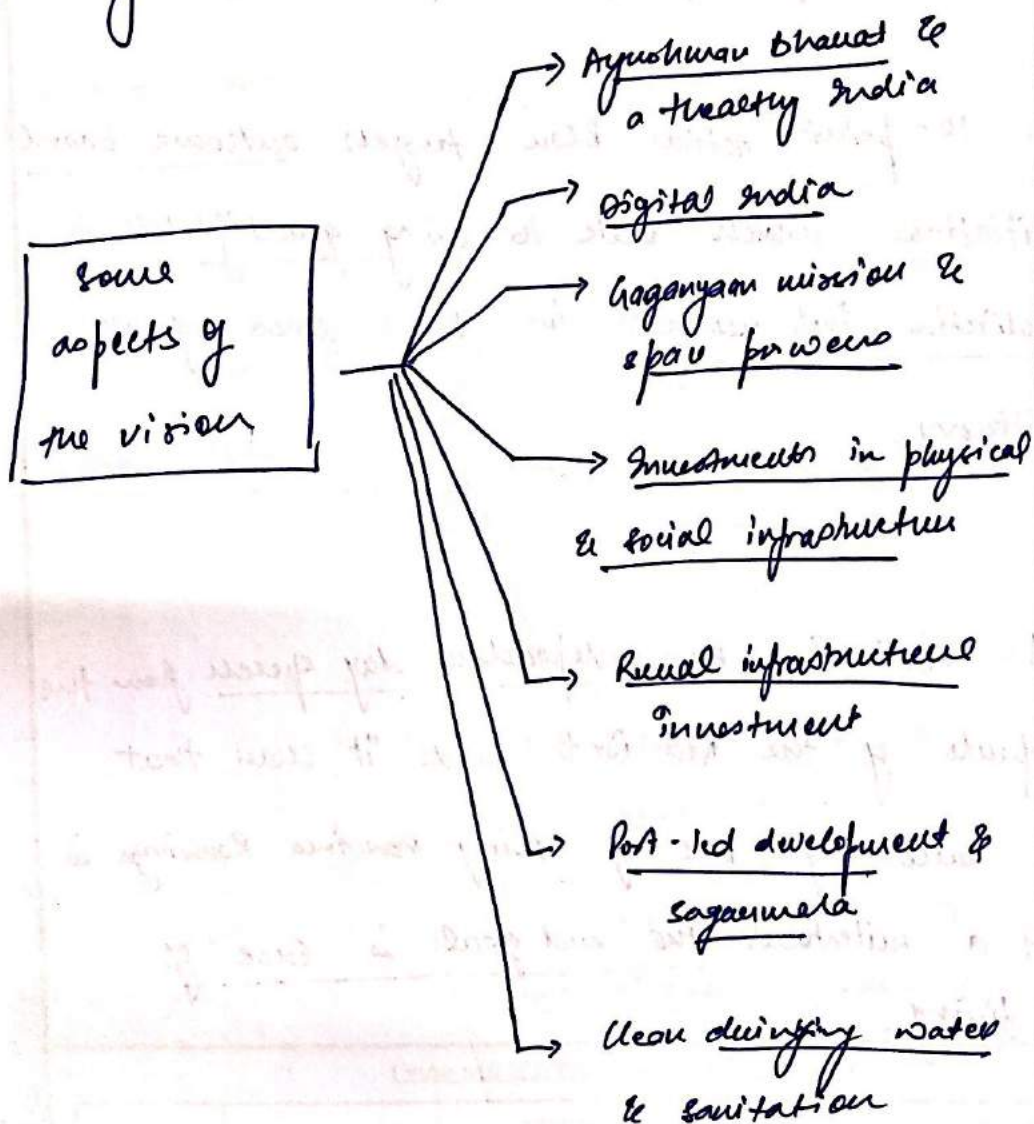 some
aspects of
the vision
Ayushman Bharat &
a healthy India
Digital India
Gaganyaan mission &
space powers
Investments in physical
& social infrastructure
Rural infrastructure
investment
Port-led development &
Sagarmala
Clean drinking water
& sanitation